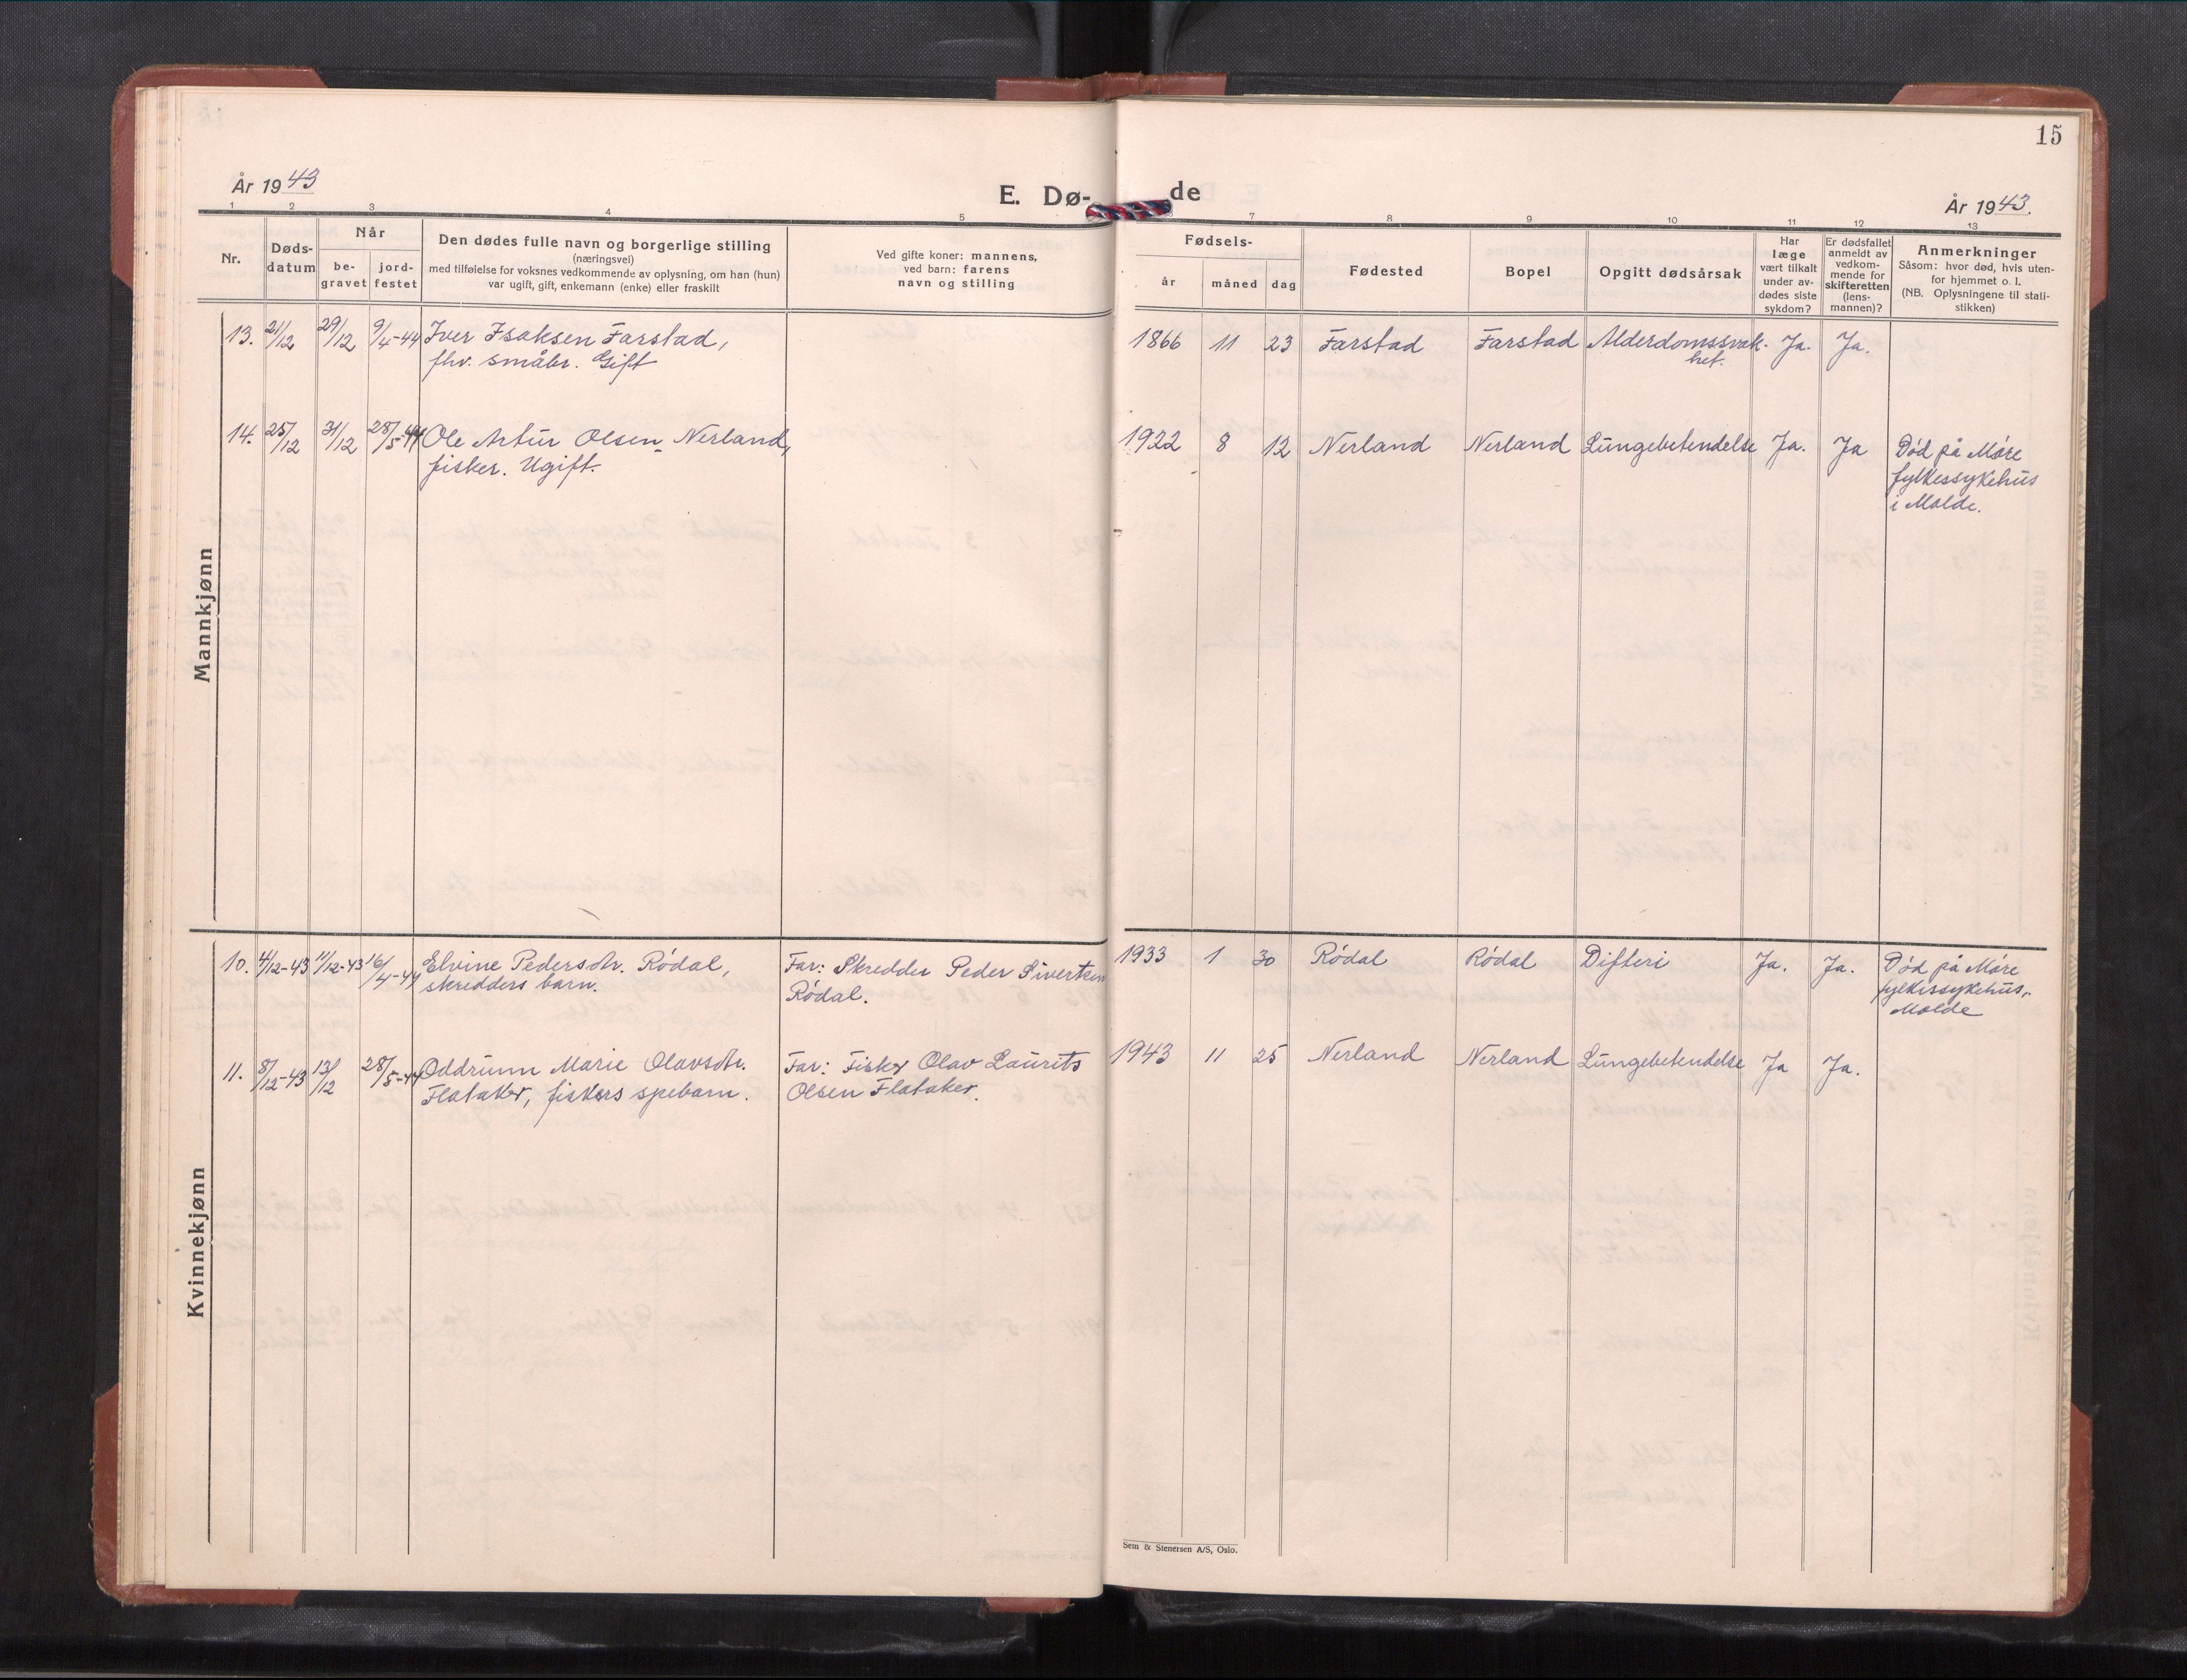 15
År 1943
E. Dø-
de
År 1943.
1 2 3 4 5
7 8 9 10 11 12 13
Nr.
Døds-
datum
Når
be-
gravet
jord-
festet
Den dødes fulle navn og borgerlige stilling
(næringsvei)
med tilføielse for voksnes vedkommende av oplysning, om han (hun)
var ugift, gift, enkemann (enke) eller fraskilt
Ved gifte koner: mannens,
ved barn: farens
navn og stilling
Fødsels-
år måned dag
Fødested
Bopel
Opgitt dødsårsak
Har
læge
vært tilkalt
under av-
dødes siste
sykdom?
Er dødsfallet
anmeldt av
vedkom-
mende for
skifteretten
(lens-
mannen)?
Anmerkninger
Såsom: hvor død, hvis uten-
for hjemmet o. l.
(NB. Oplysningene til stati-
stikken)
Mannkjønn
13. 21/12 29/12 9/4-44 Iver Isaksen Farstad,
fhv. småbr. Gift
1866 11 23 Farstad Farstad Alderdomssvak-
het.
Ja. Ja.
14. 25/12 31/12 28/5-44 Ole Artur Olsen Nerland,
fisker. Ugift.
1922 8 12 Nerland Nerland Lungebetendelse Ja. Ja
Død på Møre
fylkessykehus
i Molde.
Kvinnekjønn
10. 4/12-43 11/12-43 16/4-44 Elvine Pedersdtr. Rødal,
skredders barn.
Far: Skredder Peder Sivertsen
Rødal.
1933 1 30 Rødal Rødal Difteri Ja. Ja.
Død på Møre
fylkessykehus,
Molde
11. 8/12-43 13/12 28/5-44 Oddrunn Marie Olavsdtr.
Flataker, fiskers spebarn.
Far: Fisker Olav Laurits
Olsen Flataker.
1943 11 25 Nerland Nerland Lungebetendelse Ja Ja.
Sem & Stenersen A/S, Oslo.